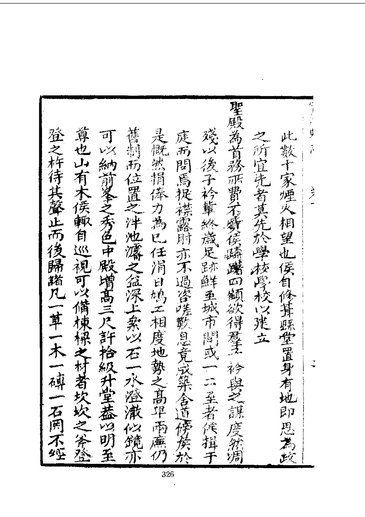 此數十家煙火相望也侯自修葺縣堂置身有地即思為政
之所宜先者莫先於學校學校以建立
聖殿為首務而費不貲侯躊躇四顧欲得君子衿與之謀度然凋
殘以後子衿輩終歲足跡鮮至城市間或一二至者侯揖于
庭而問焉捉襟露肘亦不過咨嗟歎息竟成築舍道傍矣於
是慨然捐俸力為已任涓日鳩工相度地勢之高卑兩廡仍
舊制而位置之泮池濬之益深上纍以石一水澄澈似鏡亦
可以納前峯之秀色中殿增高三尺許拾級升堂益以明至
尊也山有木侯輒自巡視可以備棟樑之材者坎坎之斧登
登之杵待其聲止而後歸諸凡一草一木一磚一石罔不經
326